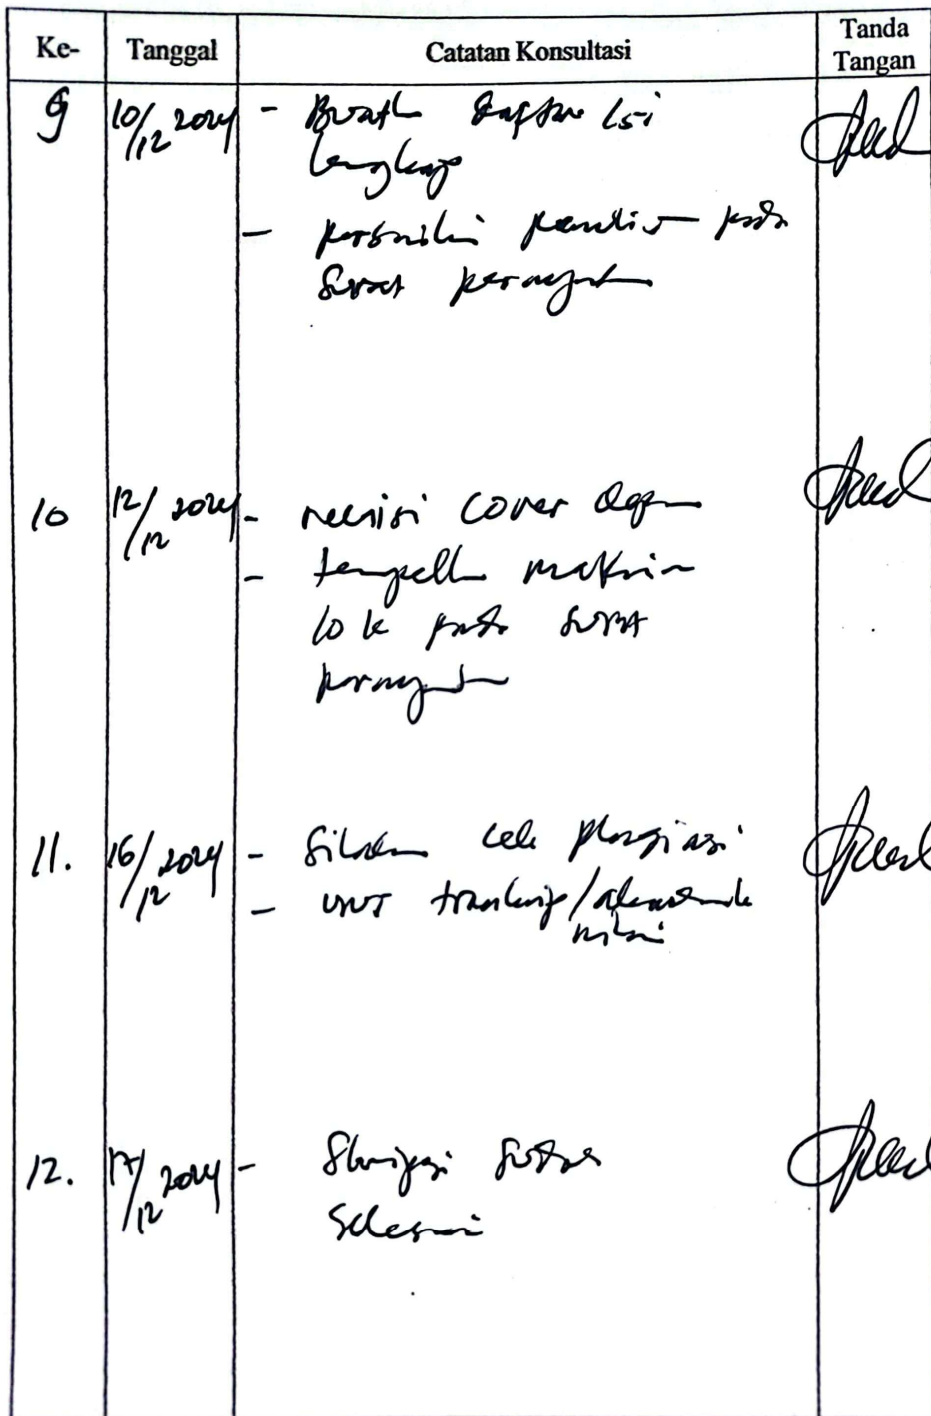 Ke- Tanggal Catatan Konsultasi Tanda Tangan
9 10/12 2024 - Buatlah Daftar Isi
lengkap
- perbaiki penulisan pada
Surat pernyataan
10 12/12 2024 - revisi cover depan
- tempelkan materai
10 k pada surat
pernyataan
11. 16/12 2024 - Silakan cek plagiasi
- urus transkrip/akademik
nilai
12. 17/12 2024 - Skripsi sudah
Selesai